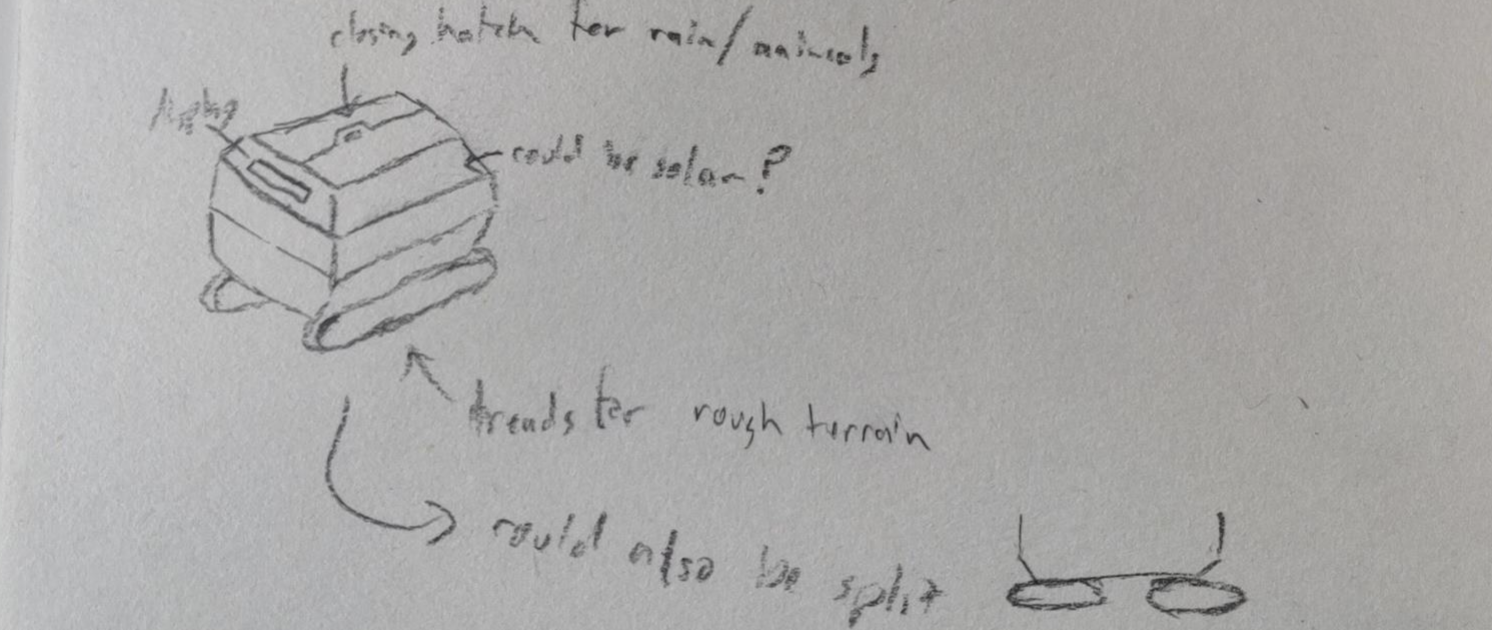 closing hatch for rain/animals
could be solar?
treads for rough terrain
could also be split